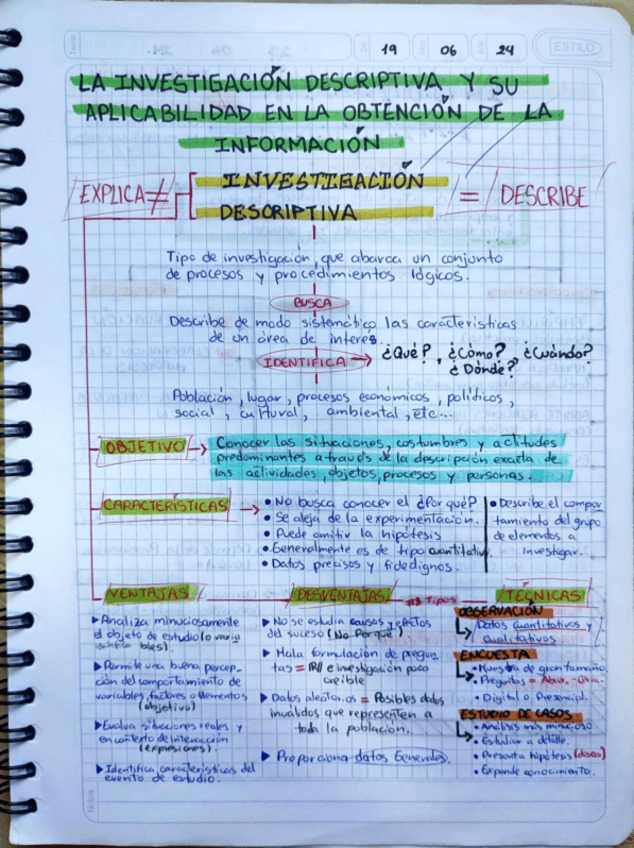 19 06 24
ESTILO
LA INVESTIGACIÓN DESCRIPTIVA Y SU
APLICABILIDAD EN LA OBTENCIÓN DE LA
INFORMACIÓN
EXPLICA ≠
INVESTIGACIÓN
DESCRIPTIVA
= DESCRIBE
Tipo de investigación, que abarca un conjunto
de procesos y procedimientos lógicos.
BUSCA
Describe de modo sistemático las características
de un área de interés
IDENTIFICA → ¿Qué?, ¿Cómo?, ¿Cuándo?
¿Dónde?
Población, lugar, procesos económicos, políticos,
social, cultural, ambiental, etc...
OBJETIVO →
Conocer las situaciones, costumbres y actitudes
predominantes a través de la descripción exacta de
las actividades, objetos, procesos y personas.
CARACTERÍSTICAS →
• No busca conocer el ¿Por qué?
• Se aleja de la experimentación.
• Puede omitir la hipótesis
• Generalmente es de tipo cuantitativo.
• Datos precisos y fidedignos.
• Describe el compor
tamiento del grupo
de elementos a
investigar.
VENTAJAS
▸ Analiza minuciosamente
el objeto de estudio (o varia
bles).
▸ Permite una buena percep-
ción del comportamiento de
variables, factores o elementos
(objetivo)
▸ Evalua situaciones reales y
en contexto de interacción
(expresiones).
▸ Identifica características del
evento de estudio.
DESVENTAJAS
▸ No se estudia causas y efectos
del suceso (No Porqué)
▸ Mala formulación de pregun
tas = e investigación poco
creible
▸ Datos aleatorios = Posibles datos
inválidos que representen a
toda la población.
▸ Proporciona datos Generales.
#3 Tipos
TÉCNICAS
OBSERVACIÓN
Datos cuantitativos y
cualitativos
ENCUESTA
• Muestra de gran tamaño
• Preguntas =
• Digital o Presencial.
ESTUDIO DE CASOS
• Análisis más minucioso
• Estudiar a detalle.
• Presenta hipótesis
• Expande conocimiento.
Notas